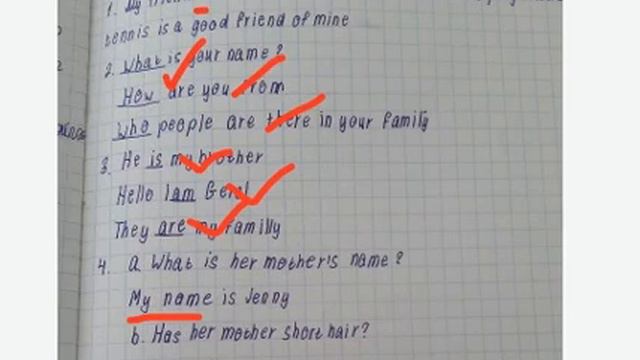 1. My
tennis is a good friend of mine
2. What is your name?
How are you from
Who people are there in your family
3. He is my brother
Hello I am
They are my familly
4. a What is her mother's name?
My name is Jenny
b. Has her mother short hair?